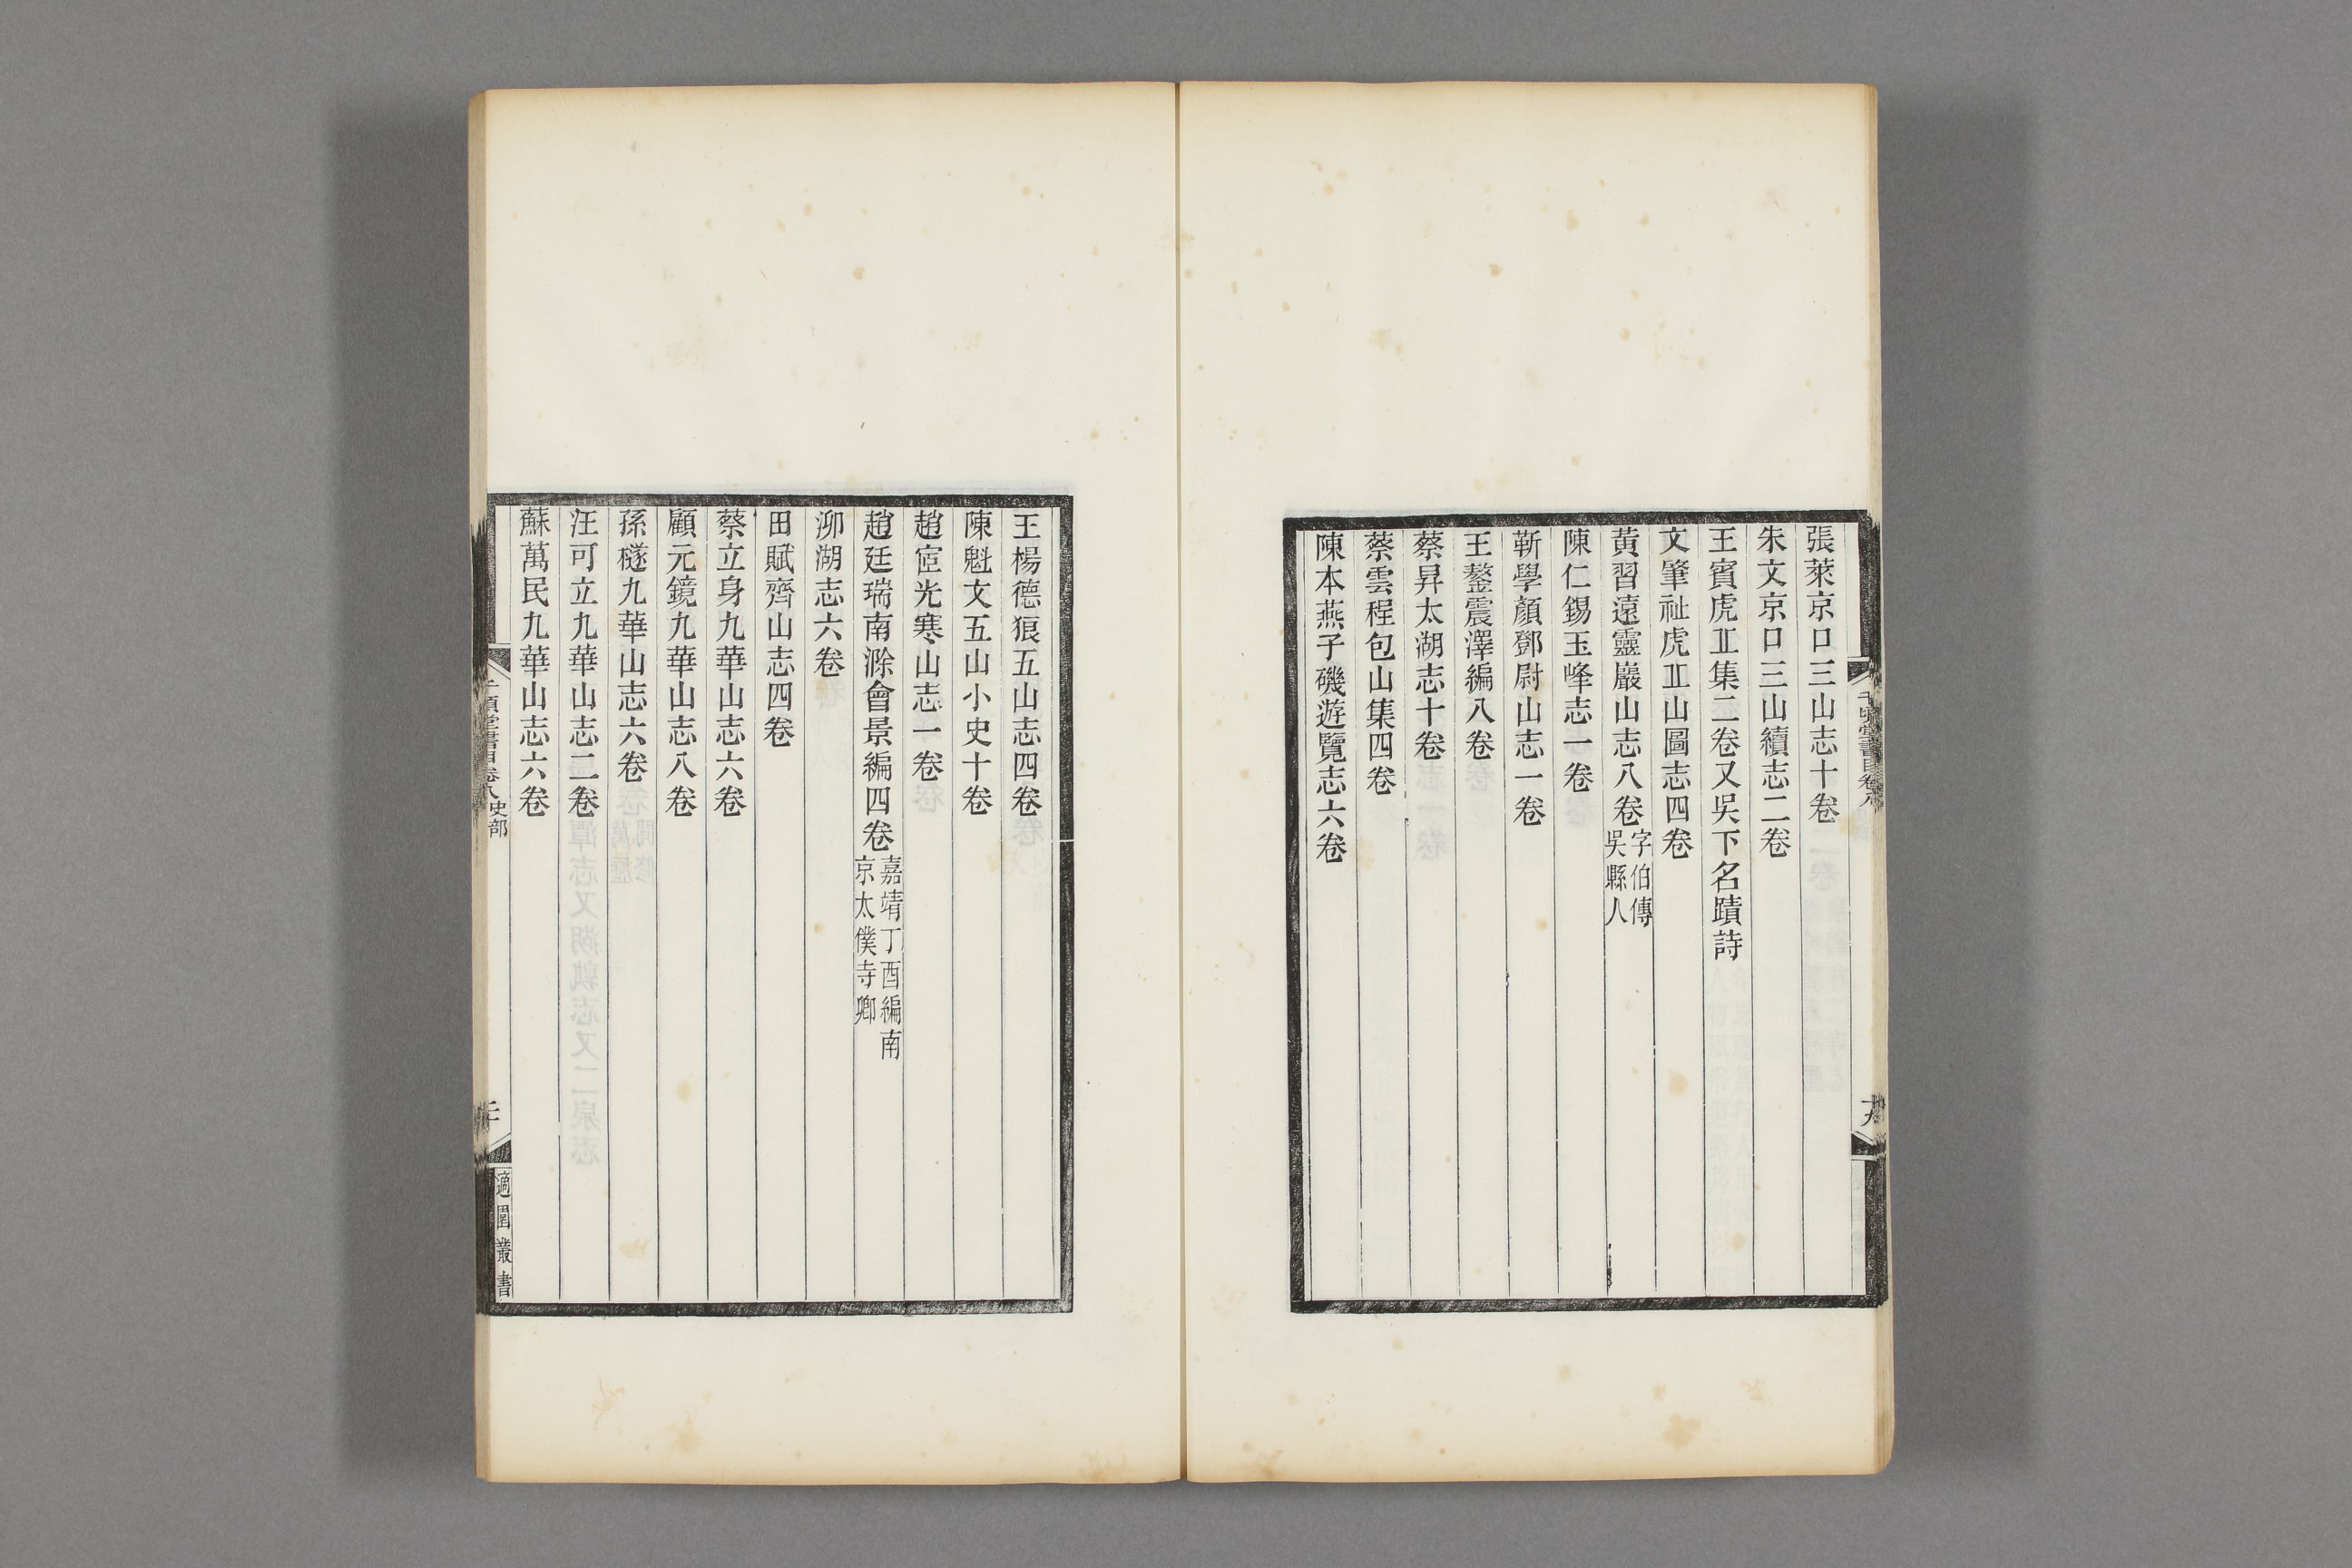 張萊京口三山志十卷
朱文京口三山續志二卷
王賓虎丠集二卷又吳下名蹟詩
文肇祉虎丠山圖志四卷
黃習遠靈巖山志八卷字伯傳
吳縣人
陳仁錫玉峰志一卷
靳學顏鄧尉山志一卷
王鏊震澤編八卷
蔡昇太湖志十卷
蔡雲程包山集四卷
陳本燕子磯遊覽志六卷
千頃堂書目卷八
十九
王楊德狼五山志四卷
陳魁文五山小史十卷
趙宧光寒山志一卷
趙廷瑞南滁會景編四卷嘉靖丁酉編南
京太僕寺卿
泖湖志六卷
田賦齊山志四卷
蔡立身九華山志六卷
顧元鏡九華山志八卷
孫檖九華山志六卷
汪可立九華山志二卷
蘇萬民九華山志六卷
千頃堂書目卷八史部
二十
適園叢書